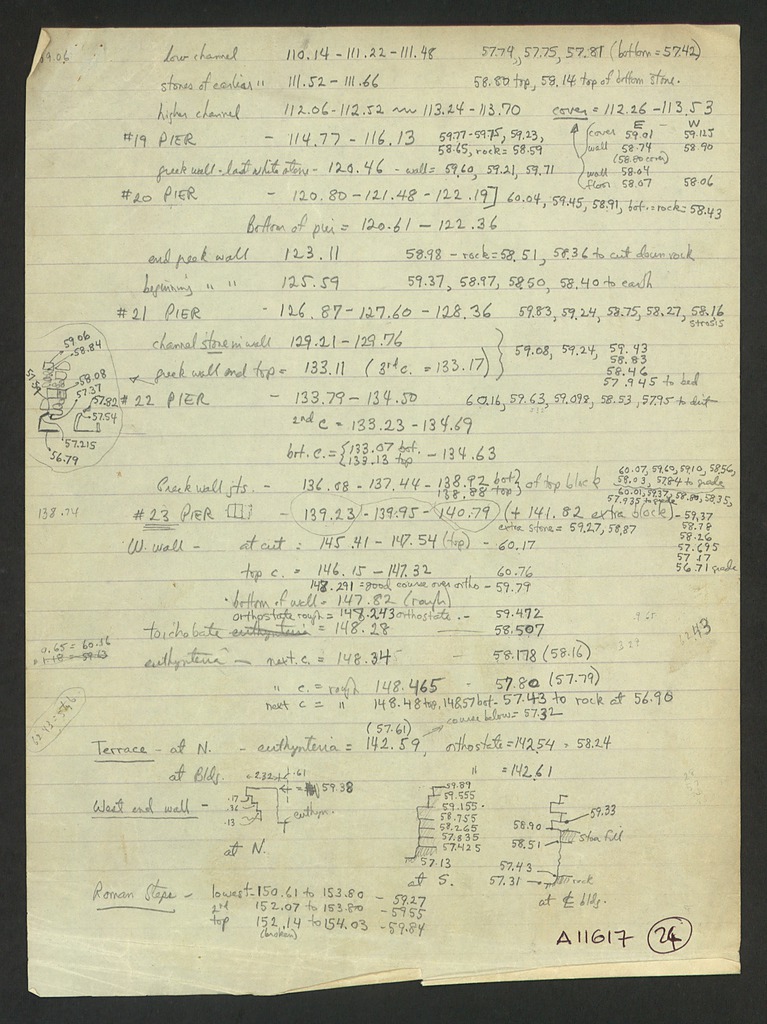 59.06
low channel 110.14 - 111.22 - 111.48 57.74, 57.75, 57.81 (bottom = 57.42)
stones of earlier " 111.52 - 111.66 58.80 top, 58.14 top of bottom stone.
higher channel 112.06 - 112.52 113.24 - 113.70 cover = 112.26 - 113.53
#19 PIER - 114.77 - 116.13 59.77 - 59.75, 59.23,
58.65, rock = 58.59
E W
cover 59.01 59.125
wall 58.74 58.90
wall 58.04
floor 58.07 58.06
greek wall - last white stone - 120.46 - wall = 59.60, 59.21, 59.71
#20 PIER - 120.80 - 121.48 - 122.19] 60.04, 59.45, 58.91, bot. = rock = 58.43
Bottom of pier = 120.61 - 122.36
end greek wall 123.11 58.98 - rock = 58.51, 58.36 to cut down rock
beginning " " 125.59 59.37, 58.97, 58.50, 58.40 to earth
#21 PIER - 126.87 - 127.60 - 128.36 59.83, 59.24, 58.75, 58.27, 58.16
channel stone in wall 129.21 - 129.76
59.08, 59.24, 59.43
58.83
58.46
57.945 to bed
greek wall and top = 133.11 (3rd c. = 133.17)
59.06
58.84
58.08
57.37
57.82
57.54
57.215
56.79
#22 PIER - 133.79 - 134.50 60.16, 59.63, 59.098, 58.53, 57.95 to dirt
2nd c = 133.23 - 134.69
bot. c. = {133.07 bot. - 134.63
133.13 top
Greek wall jts. - 136.08 - 137.44 - 138.92 bot} of top block
138.88 top
60.07, 59.60, 59.10, 58.56,
58.03, 57.84 to grade
60.01, 59.37, 58.80, 58.35,
57.935 to grade
138.74
#23 PIER - 139.23 - 139.95 - 140.79 (+ 141.82 extra block) - 59.37
extra stone = 59.27, 58.87 58.78
58.26
57.695
57.17
56.71 grade
W. wall - at cut : 145.41 - 147.54 (top) - 60.17
top c. = 146.15 - 147.32 60.76
148.291 = good course over ortho - 59.79
bottom of wall = 147.82 (rough)
orthostate rough = 148.243 orthostate - 59.472
toichobate euthynteria = 148.28 58.507
0.65 = 60.36
euthynteria - next c. = 148.345 - 58.178 (58.16)
" c. = rough 148.465 - 57.80 (57.79)
next c = " 148.48 top, 148.57 bot - 57.43 to rock at 56.90
(57.61) course below = 57.32
Terrace - at N. - euthynteria = 142.59, orthostate = 142.54 = 58.24
at Bldg. " = 142.61
West end wall -
2.32 .61
59.38
.17
.36
.13
euthyn.
at N.
59.89
59.555
59.155
58.755
58.265
57.835
57.425
57.13
at S.
59.33
58.90
58.51
stone fill
57.43
57.31 rock
at ℄ bldg.
Roman Steps - lowest - 150.61 to 153.80 - 59.27
2nd 152.07 to 153.80 - 59.55
top 152.14 to 154.03 - 59.84
(broken)
A11617 24